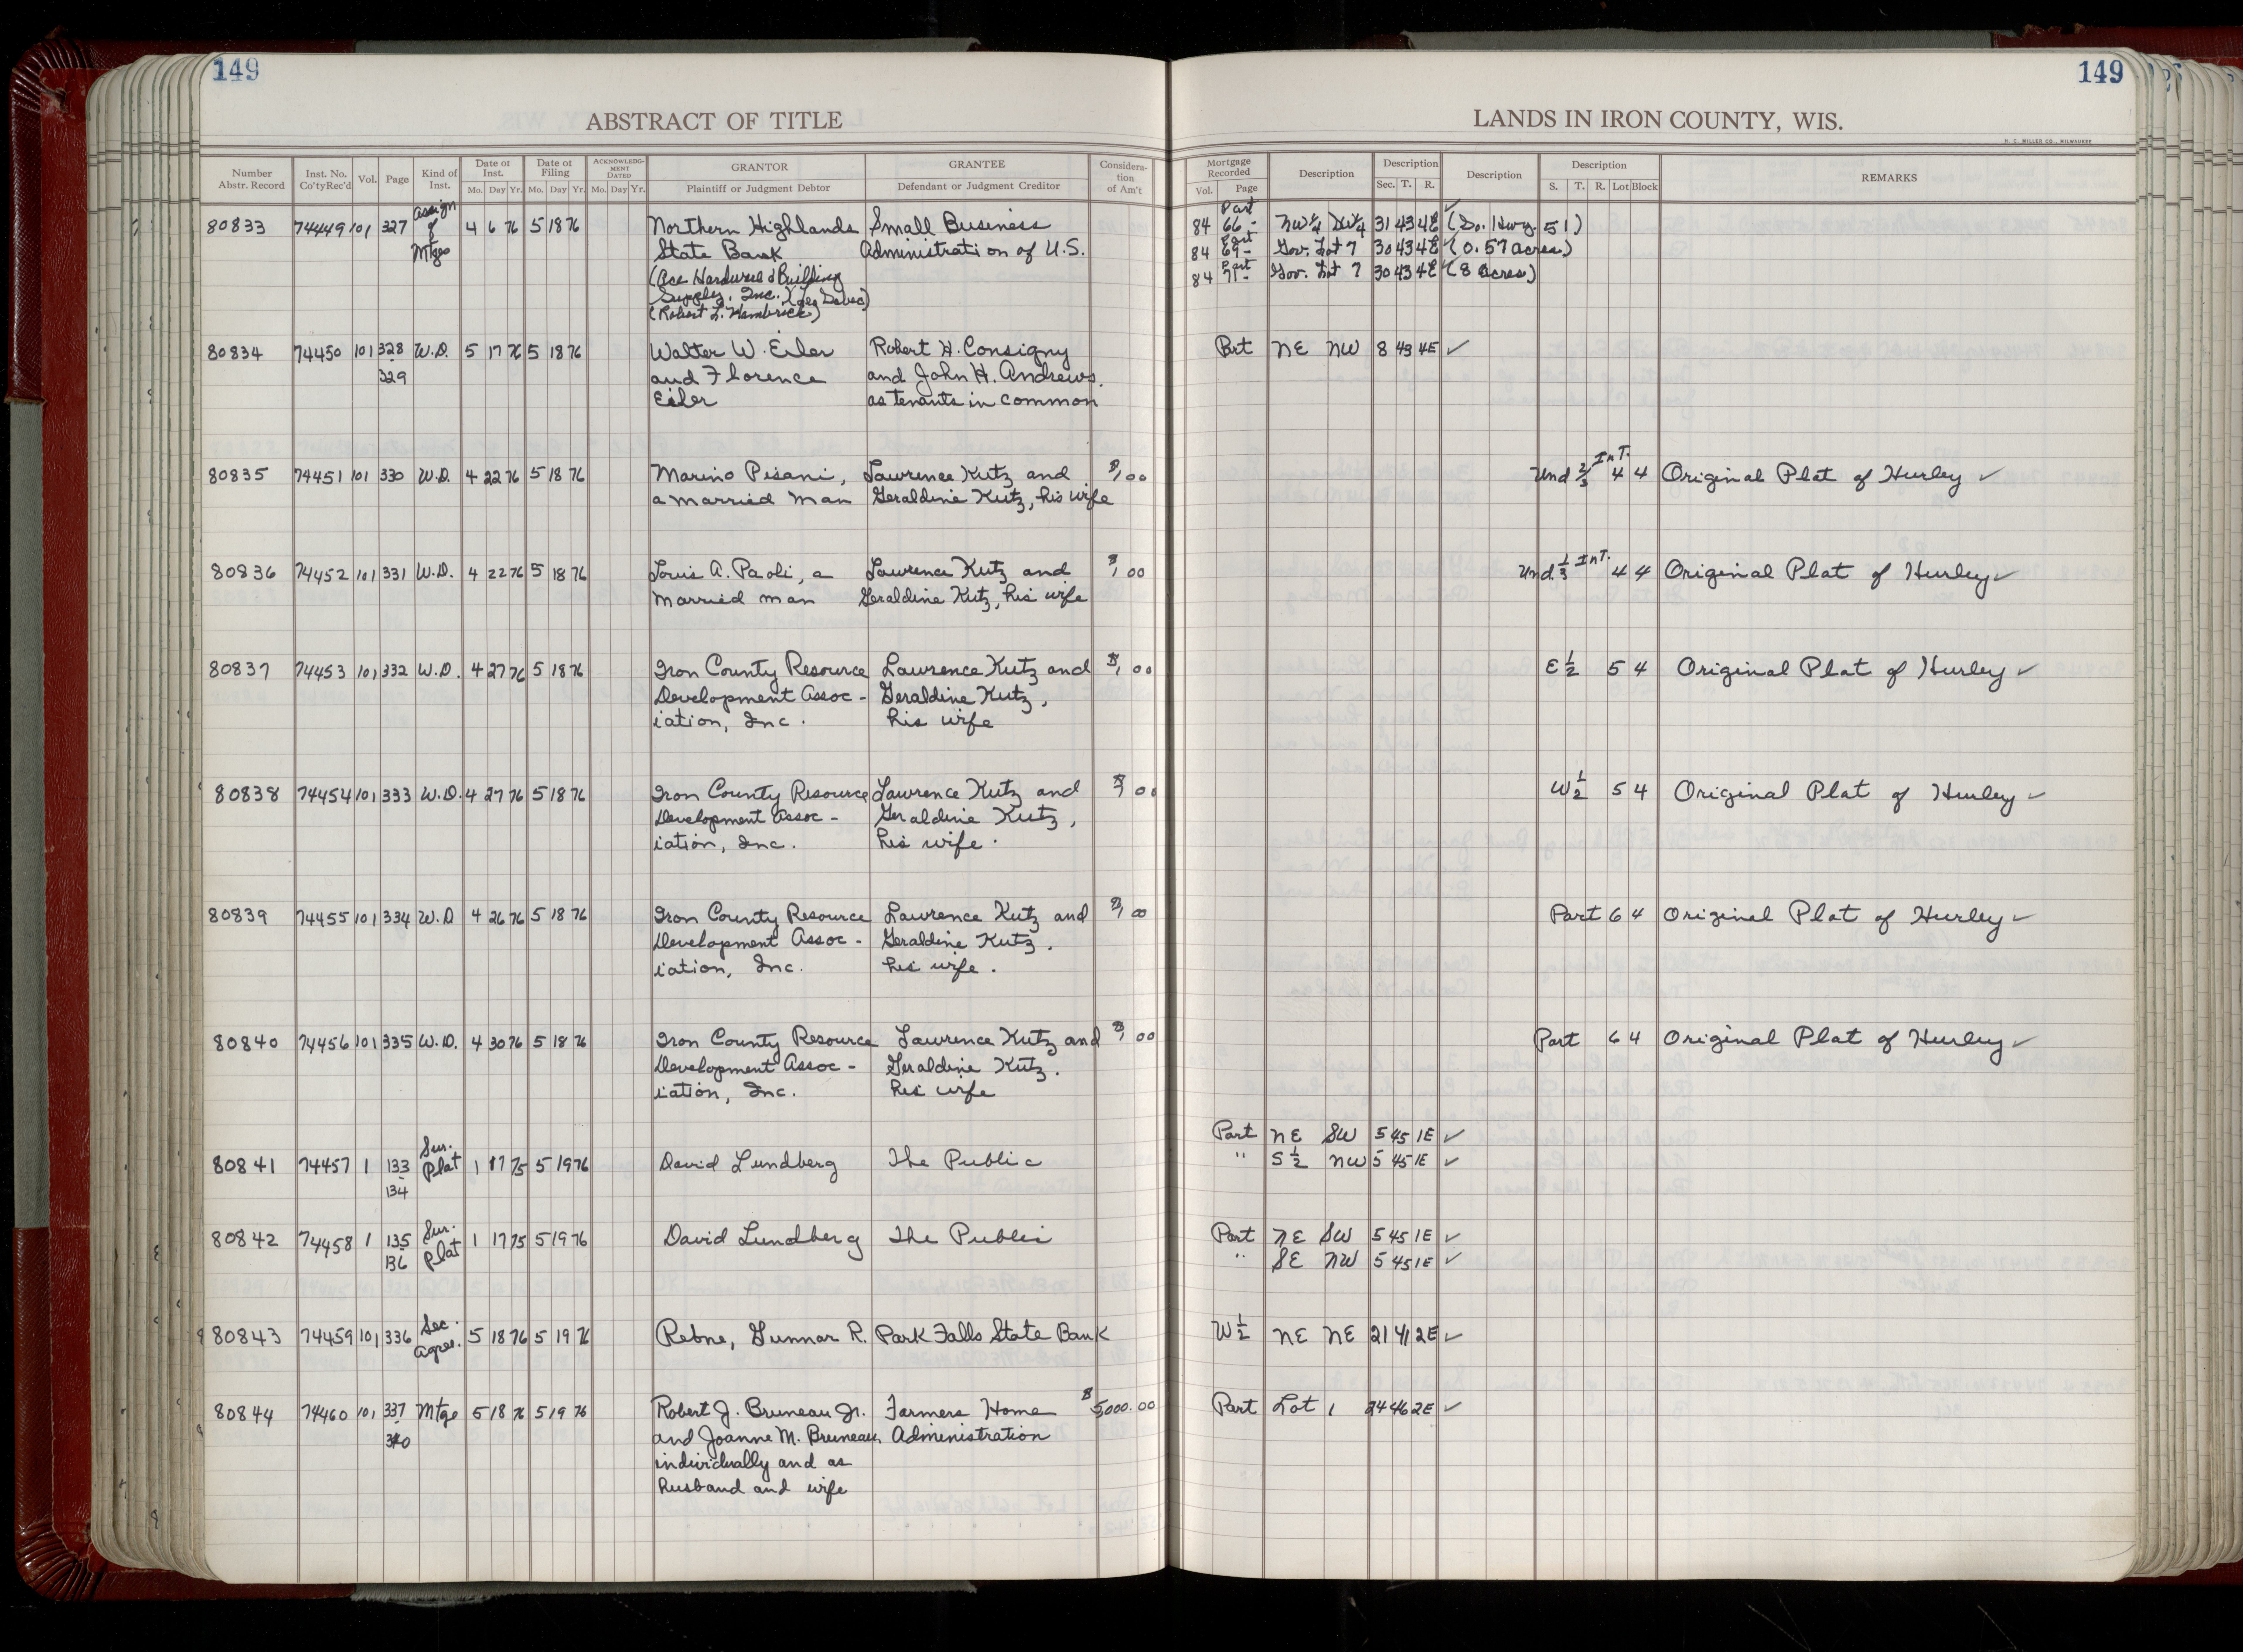 149
149
ABSTRACT OF TITLE
LANDS IN IRON COUNTY, WIS.
H. C. MILLER CO., MILWAUKEE
Number Abstr. Record | Inst. No. Co'ty Rec'd | Vol. | Page | Kind of Inst. | Date of Inst. Mo. Day Yr. | Date of Filing Mo. Day Yr. | ACKNOWLEDGMENT DATED Mo. Day Yr. | GRANTOR Plaintiff or Judgment Debtor | GRANTEE Defendant or Judgment Creditor | Consideration of Am't
Mortgage Recorded Vol. Page | Description | Description Sec. T. R. | Description | Description S. T. R. Lot Block | REMARKS
80833 74449 101 327 Assign of Mtge 4 6 76 5 18 76 Northern Highlands Small Business
State Bank Administration of U.S.
(Ace Hardware & Building
Supply, Inc.)
(Robert L. Hambrick)
Part
84 66 - NW¼ SW¼ 31 43 4E ✓ (So. Hwy. 51)
Part
84 69 - Gov. Lot 7 30 43 4E ✓ (0.57 acres)
Part
84 71 - Gov. Lot 7 30 43 4E ✓ (8 acres)
80834 74450 101 328 - 329 W.D. 5 17 76 5 18 76 Walter W. Eiler Robert H. Consigny
and Florence and John H. Andrews,
Eiler as tenants in common
Part NE NW 8 43 4E ✓
80835 74451 101 330 W.D. 4 22 76 5 18 76 Marino Pisani, Lawrence Kutz and $1 00
a married man Geraldine Kutz, his wife
Und 2/3 Int. 4 4 Original Plat of Hurley ✓
80836 74452 101 331 W.D. 4 22 76 5 18 76 Louis A. Paoli, a Lawrence Kutz and $1 00
married man Geraldine Kutz, his wife
Und. 1/3 Int. 4 4 Original Plat of Hurley ✓
80837 74453 101 332 W.D. 4 27 76 5 18 76 Iron County Resource Lawrence Kutz and $1 00
Development Assoc - Geraldine Kutz,
iation, Inc. his wife
E ½ 5 4 Original Plat of Hurley ✓
80838 74454 101 333 W.D. 4 27 76 5 18 76 Iron County Resource Lawrence Kutz and $1 00
Development Assoc - Geraldine Kutz,
iation, Inc. his wife.
W ½ 5 4 Original Plat of Hurley ✓
80839 74455 101 334 W.D 4 26 76 5 18 76 Iron County Resource Lawrence Kutz and $1 00
Development Assoc - Geraldine Kutz,
iation, Inc. his wife.
Part 6 4 Original Plat of Hurley ✓
80840 74456 101 335 W.D. 4 30 76 5 18 76 Iron County Resource Lawrence Kutz and $1 00
Development Assoc - Geraldine Kutz,
iation, Inc. his wife
Part 6 4 Original Plat of Hurley ✓
80841 74457 1 133 - 134 Sur. Plat 1 17 75 5 19 76 David Lundberg The Public
Part NE SW 5 45 1E ✓
" S ½ NW 5 45 1E ✓
80842 74458 1 135 - 136 Sur. Plat 1 17 75 5 19 76 David Lundberg The Public
Part NE SW 5 45 1E ✓
" SE NW 5 45 1E ✓
80843 74459 101 336 Sec. Agree. 5 18 76 5 19 76 Rebne, Gunnar R. Park Falls State Bank
W ½ NE NE 21 41 2E ✓
80844 74460 101 337 - 340 Mtge 5 18 76 5 19 76 Robert J. Bruneau Jr. Farmers Home $5,000.00
and Joanne M. Bruneau, Administration
individually and as
husband and wife
Part Lot 1 24 46 2E ✓